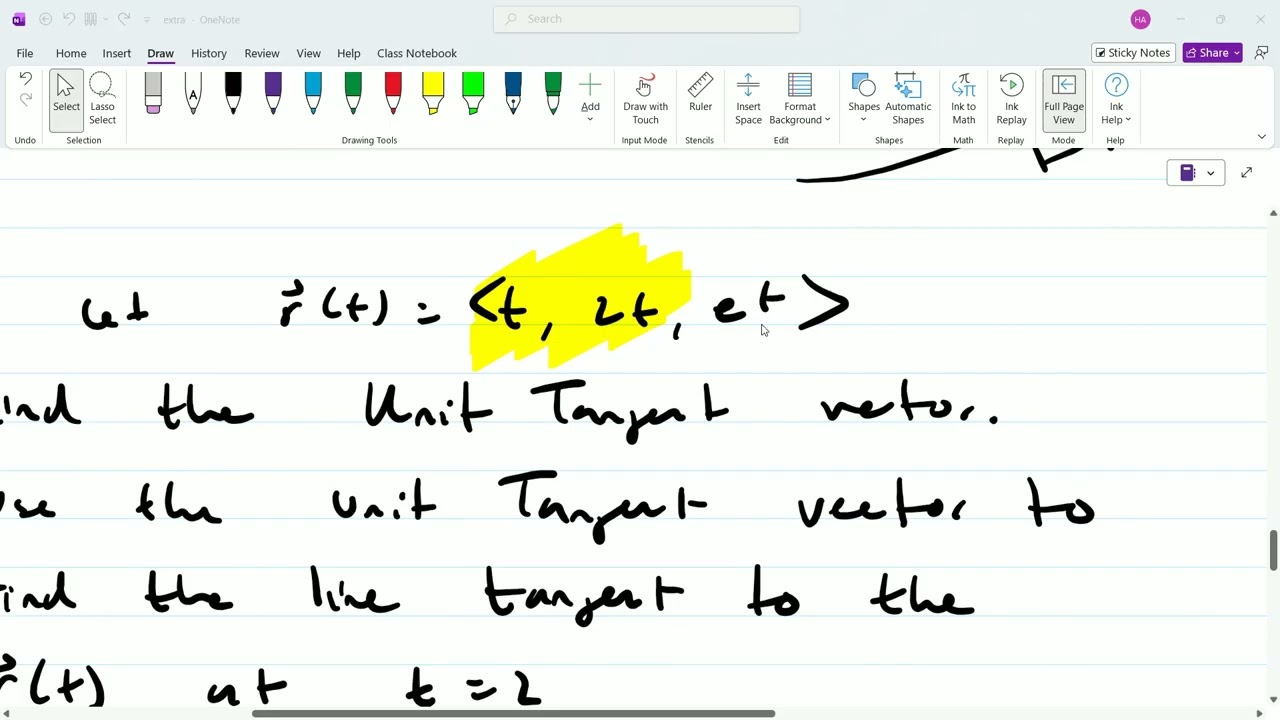 extra - OneNote
Search
HA
File Home Insert Draw History Review View Help Class Notebook
Sticky Notes Share
Select Lasso Select Add Draw with Touch Ruler Insert Space Format Background Shapes Automatic Shapes Ink to Math Ink Replay Full Page View Ink Help
Undo Selection Drawing Tools Input Mode Stencils Edit Shapes Math Replay Mode Help
let r⃗(t) = <t, 2t, e^t>
ind the Unit Tangent vector.
se the unit Tangent vector to
ind the line tangent to the
r⃗(t) at t = 2